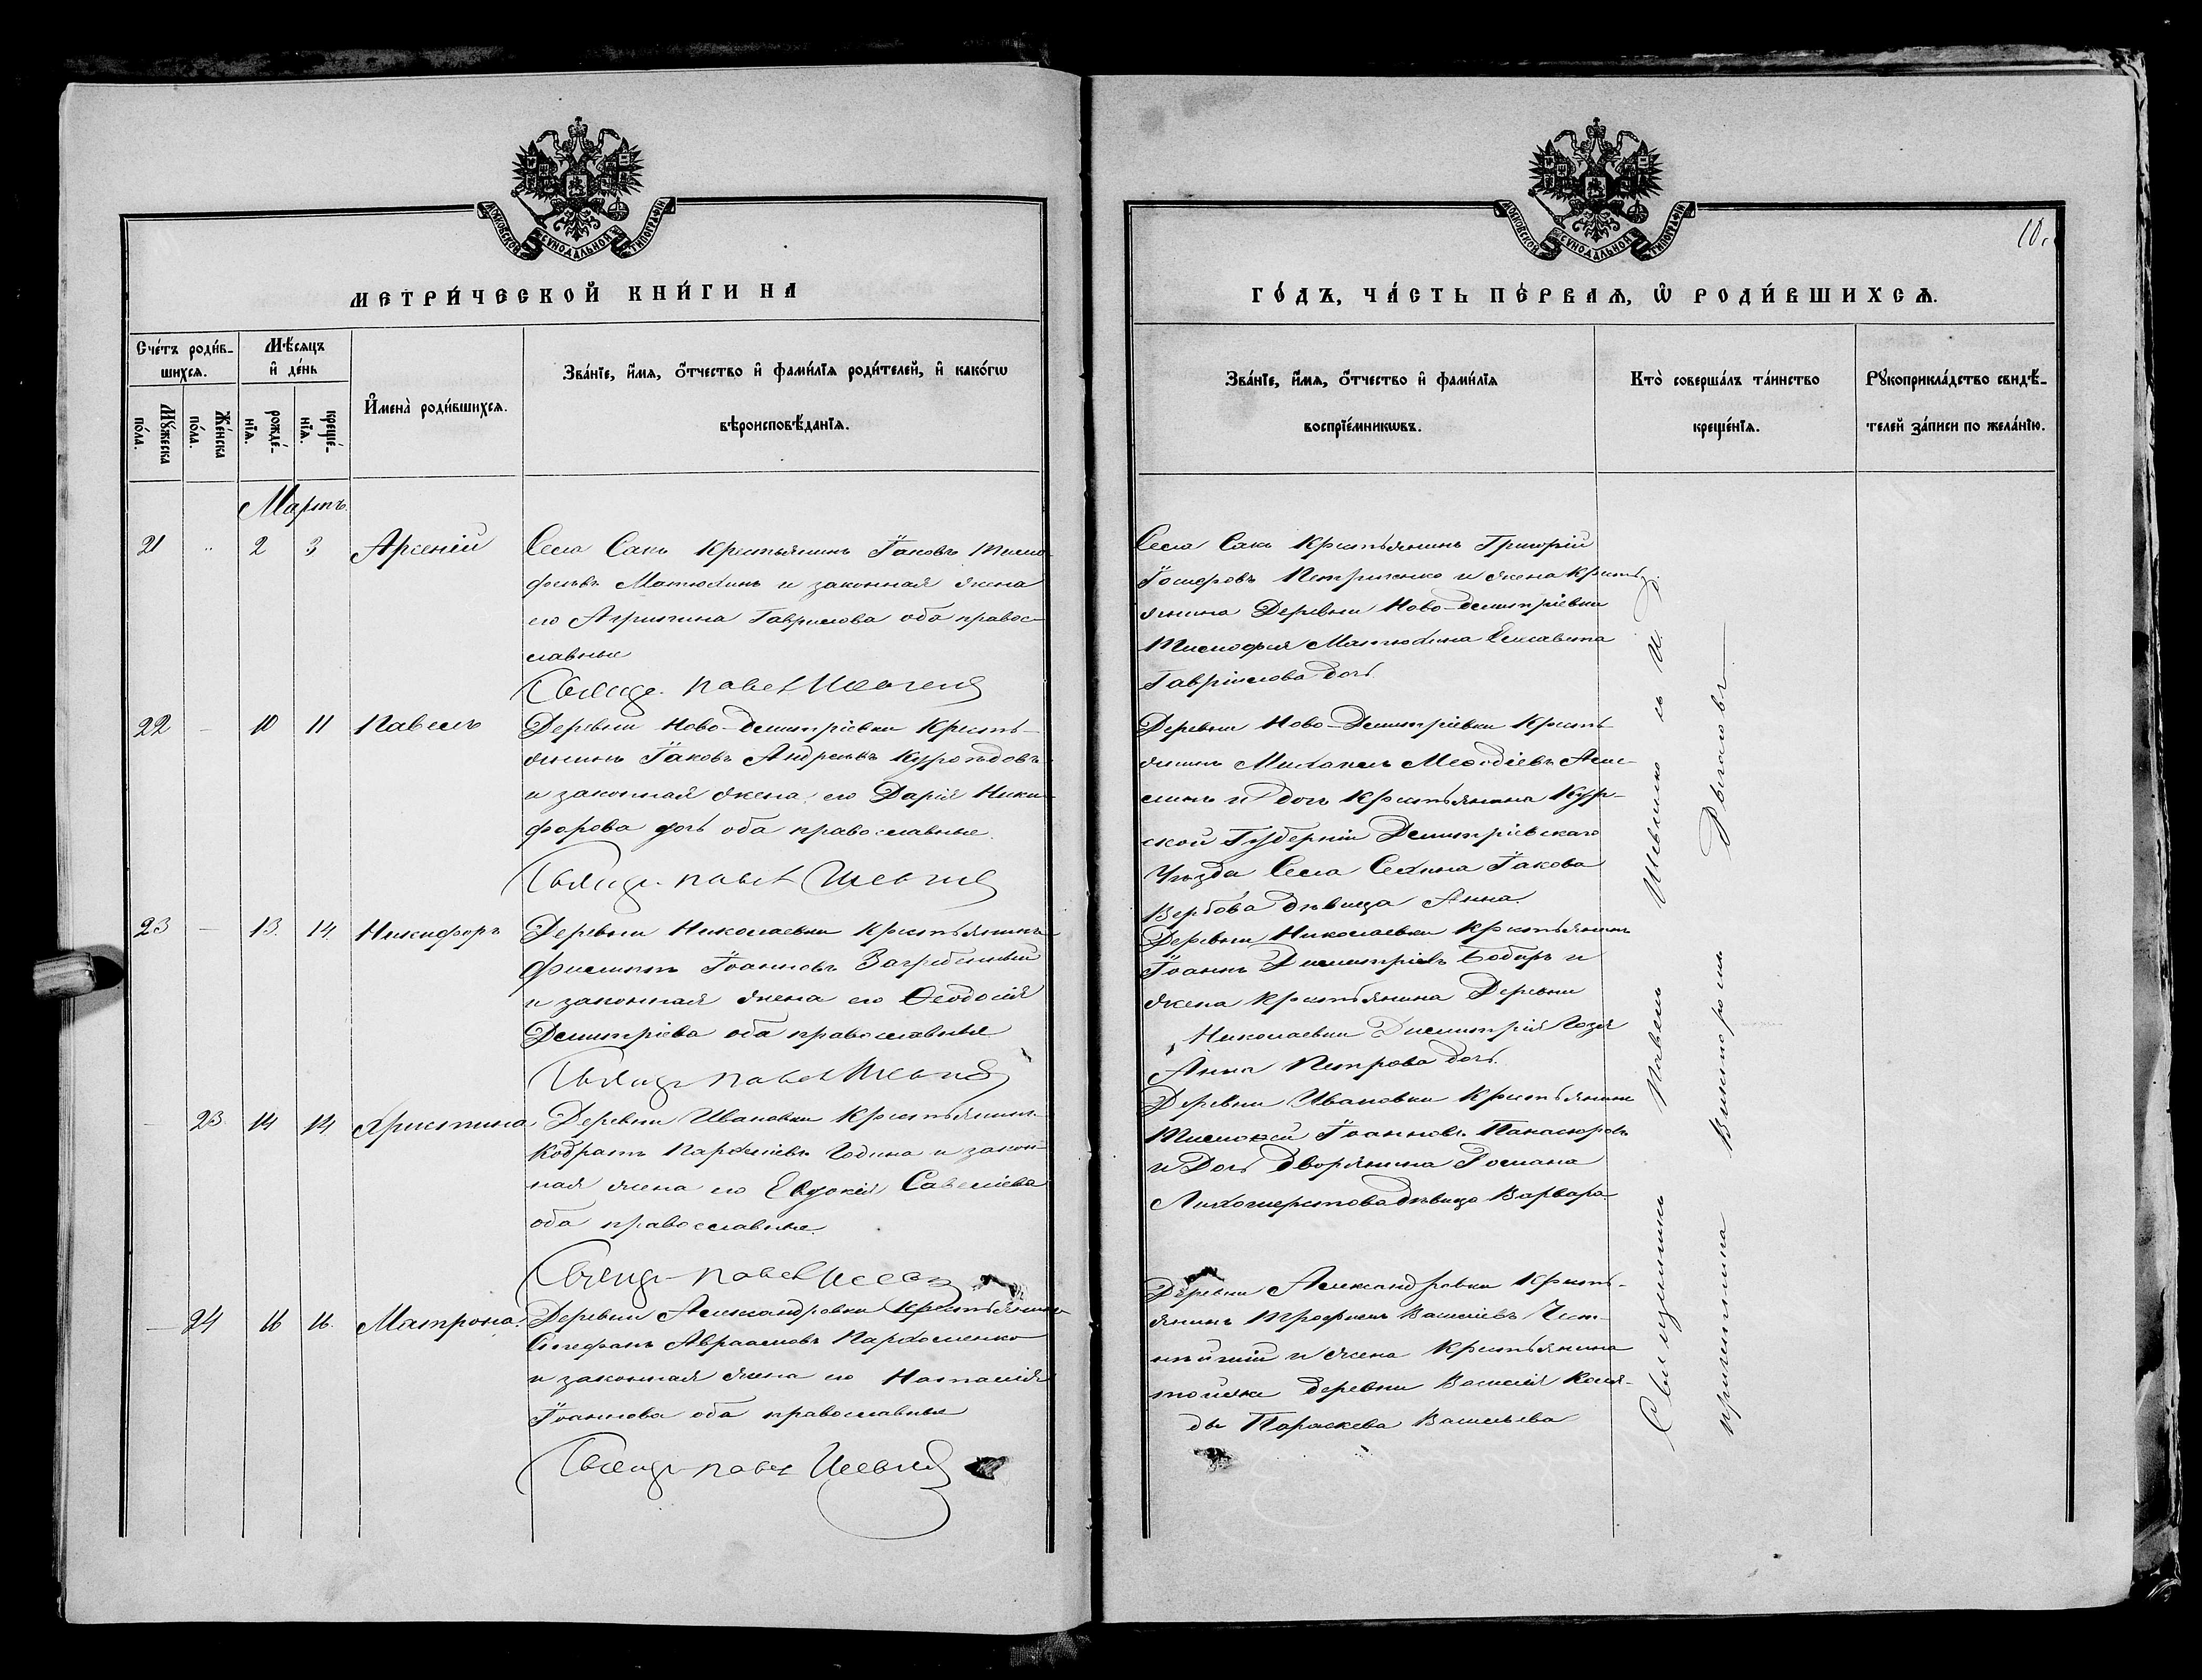 МОСКОВСКОЙ СѴНОДАЛЬНОЙ ТИПОГРАФІИ
МЕТРИ́ЧЕСКОЙ КНИ́ГИ НА
Сче́тъ роди́в-
шихсѧ.
Мѣ́сѧцъ
и҆ де́нь
Мꙋ́жеска
по́ла.
Же́нска
по́ла.
рожде́-
нїѧ.
креще́-
нїѧ.
И҆мена̀ роди́вшихсѧ.
Зва́нїе, и҆́мѧ, ѻ҆́тчество и҆ фами́лїѧ роди́телей, и҆ како́гѡ
вѣроисповѣ́данїѧ.
Мартъ.
21 " 2 3 Арсеній Села Саки Крестьянинъ Іаковъ Тимо-
феевъ Матюхинъ и законная жена
его Агрипина Гаврилова оба правос-
лавные
Священ. Павел
22 — 10 11 Павелъ Деревни Ново-Димитріевки Кресть-
янинъ Іаковъ Андреевъ
и законная жена его Дарія Ники-
форова дочь оба православные.
Священ. Павел
23 — 13. 14. Никифоръ Деревни Николаевки Крестьянинъ
Филиппъ Іоанновъ Загребельный
и законная жена его Ѳеодосія
Димитріева оба православные
Священ. Павел
— 23. 14 14 Христина. Деревни Ивановки Крестьянинъ
Кодратъ Година и закон-
ная жена его Евдокія Савеліева
оба православные.
Священ. Павел
— 24 16 16. Матрона. Деревни Александровки Крестьянинъ
Стефанъ Авраамовъ Пархоменко
и законная жена его Наталія
Іоаннова оба православные
Священ. Павел
МОСКОВСКОЙ СѴНОДАЛЬНОЙ ТИПОГРАФІИ
10.
ГО́ДЪ, ЧА́СТЬ ПЕ́РВАѦ, Ѡ҆ РОДИ́ВШИХСѦ.
Зва́нїе, и҆́мѧ, ѻ҆́тчество и҆ фами́лїѧ
воспрїе́мникѡвъ.
Кто̀ соверша́лъ та́инство
креще́нїѧ.
Рꙋкоприкла́дство свидѣ́-
телей за́писи по жела́нїю.
Села Саки Крестьянинъ Григорій
Іосифовъ Петриченко и жена Кресть-
янина Деревни Ново-Димитріевки
Тимофея Матюхина Елисавета
Гавріилова дочь.
Деревни Ново-Димитріевки Кресть-
янинъ Михаилъ Меѳодіевъ
и дочь Крестьянина Кур-
ской Губерніи Димитріевскаго
Уѣзда Села Іакова
Вербова дѣвица Анна.
Деревни Николаевки Крестьянинъ
Іоаннъ Димитріевъ Бобырь и
жена Крестьянина Деревни
Николаевки Димитрія
Анна Петрова дочь.
Деревни Ивановки Крестьянинъ
Тимоѳей Іоанновъ
и Дочь дворянина Романа
Лихошерстова дѣвица Варвара
Деревни Александровки Кресть-
янинъ Трофимъ
и жена Крестьянина
той же деревни Василія Коля-
ды Параскева Васильева
Священникъ Павелъ Шевченко съ И. Д.
причетника Викторомъ